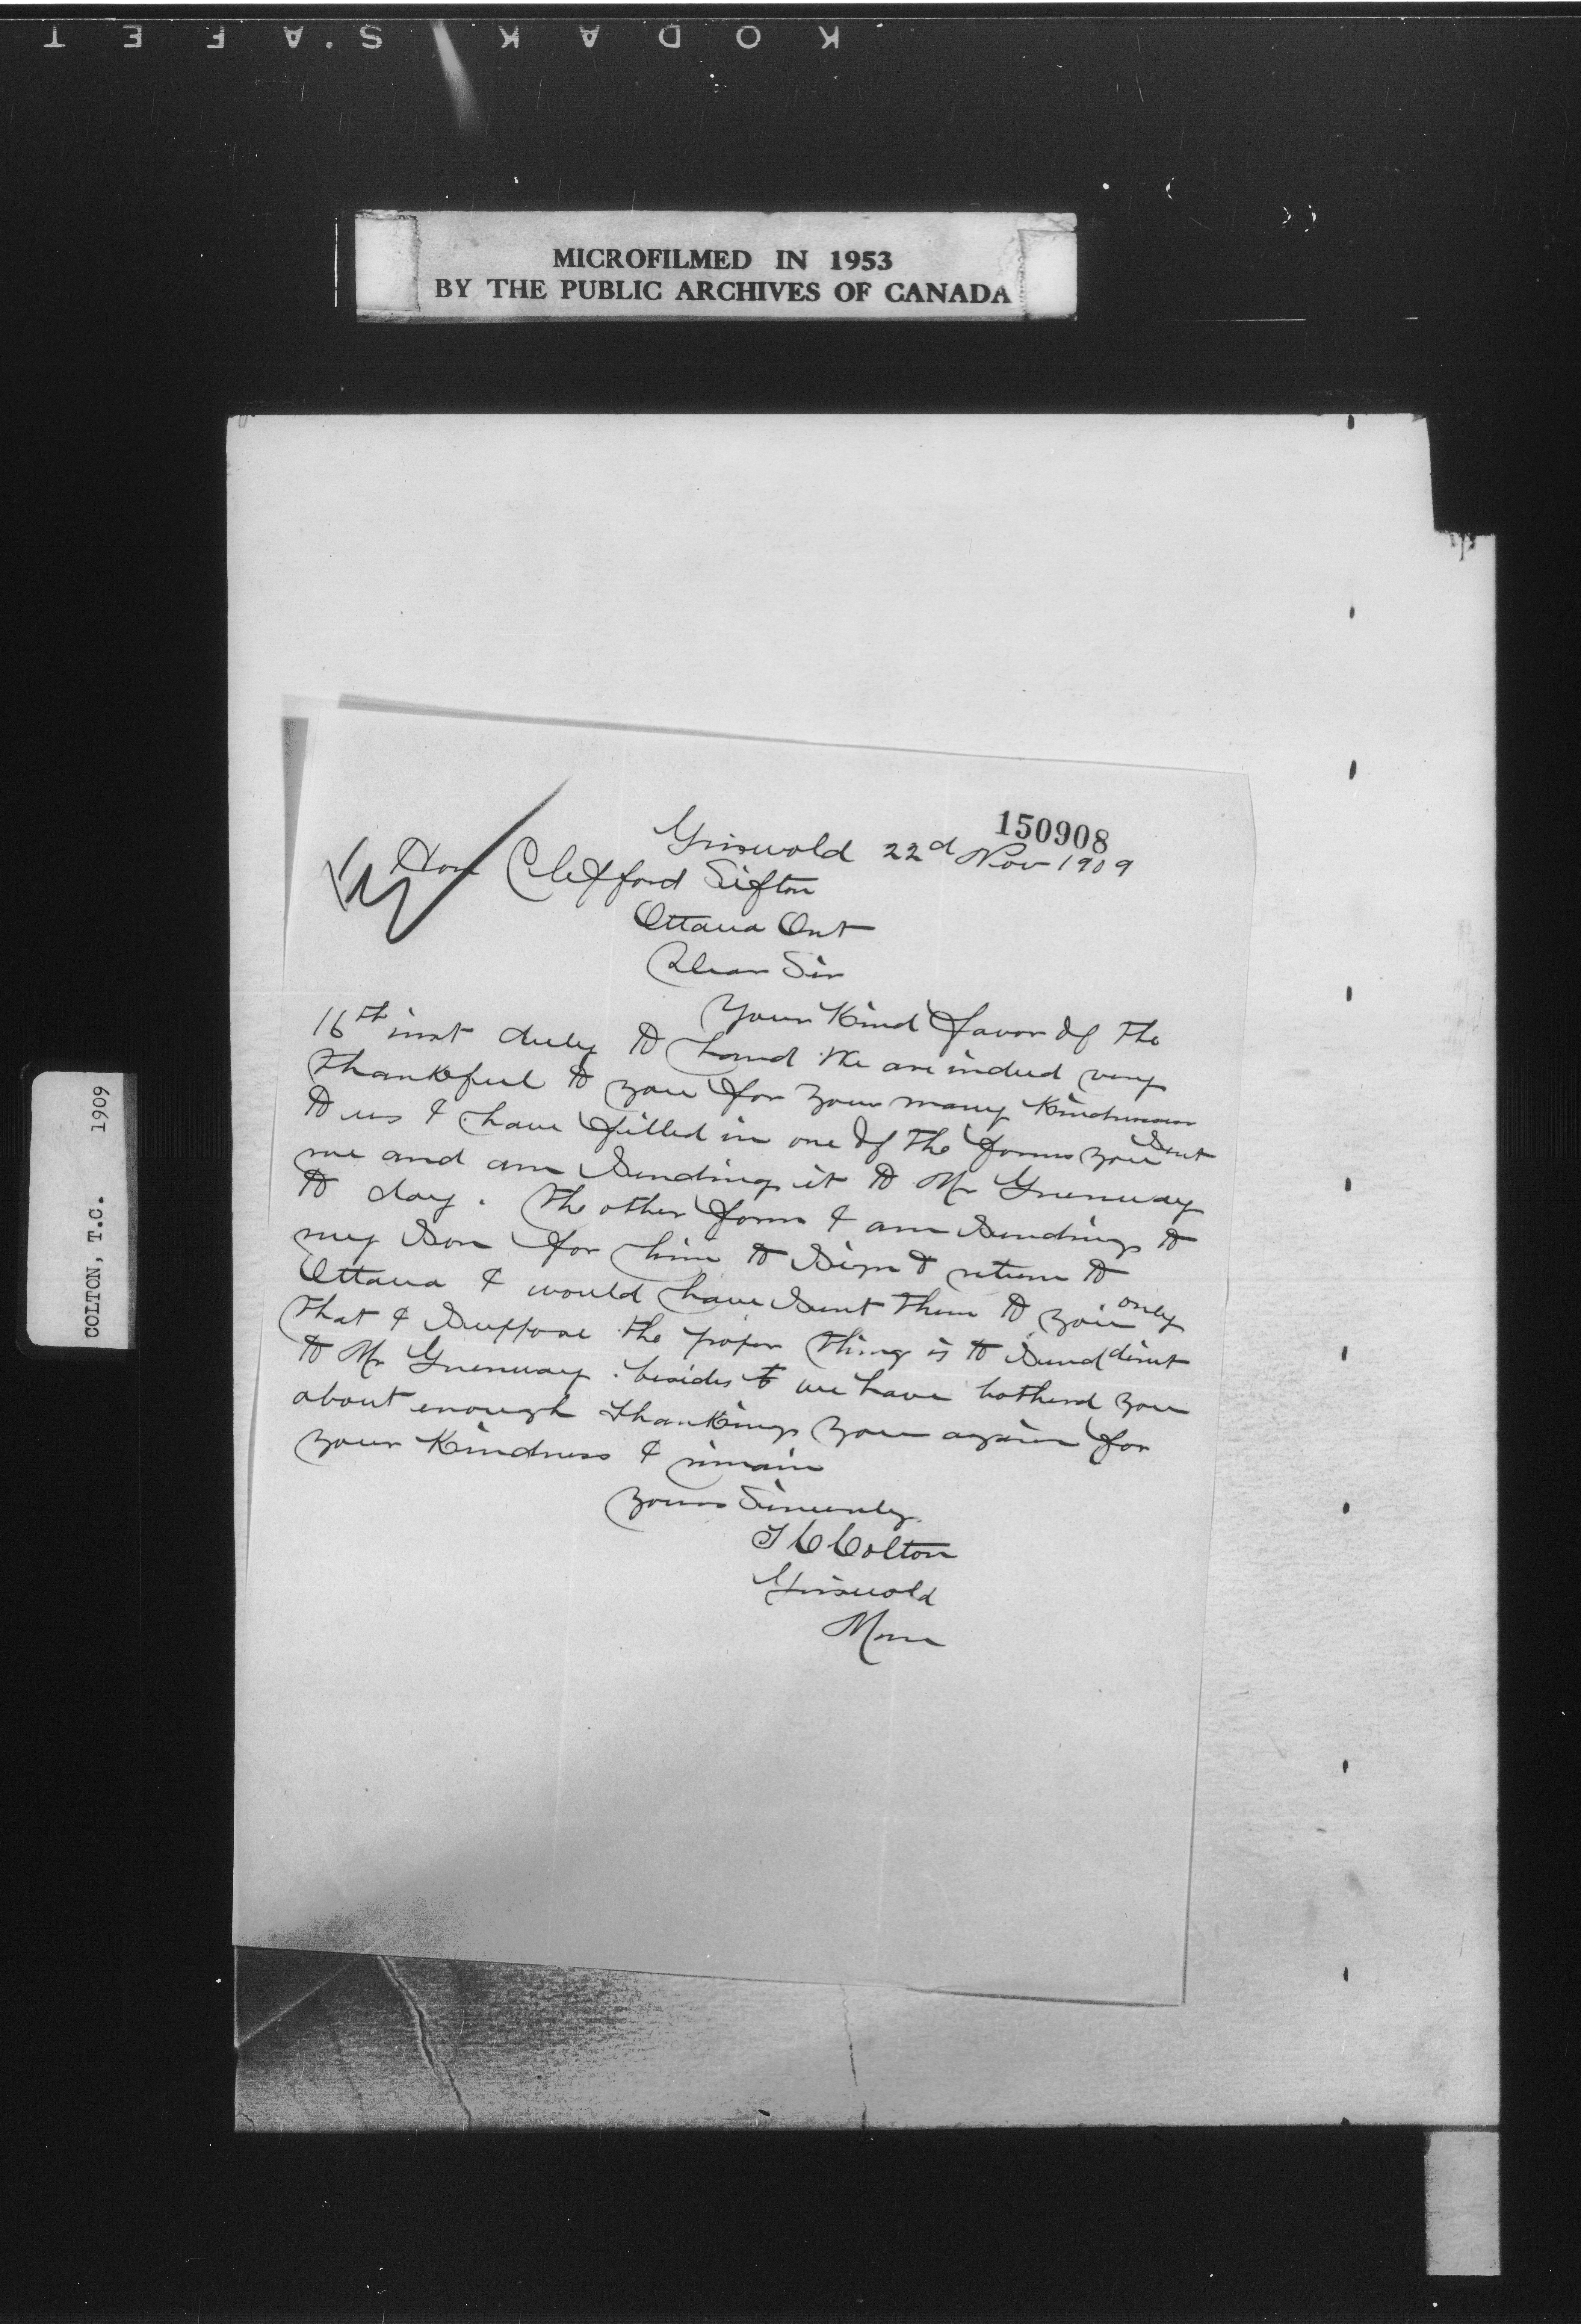 KODAK SAFET
MICROFILMED IN 1953
BY THE PUBLIC ARCHIVES OF CANADA
COLTON, T.C. 1909
150908
Griswold 22d Nov 1909
Hon Clifford Sifton
Ottawa Ont
Dear Sir
Your Kind favor of the
16th inst duly to hand We are indeed very
thankful to you for your many Kindnesses
to us I have filled in one of the forms you sent
me and am sending it to Mr Greenway
to day. the other form I am sending to
my son for him to sign & return to
Ottawa I would have sent them to you only
that I suppose the proper thing is to send direct
to Mr Greenway. besides we have botherd you
about enough thanking you again for
your Kindness I remain
yours Sincerely
T C Colton
Griswold
Man